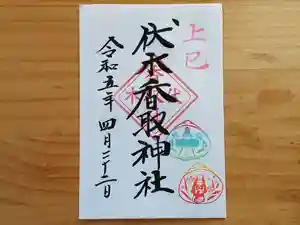 上巳
伏木香取神社
令和五年四月二十二日